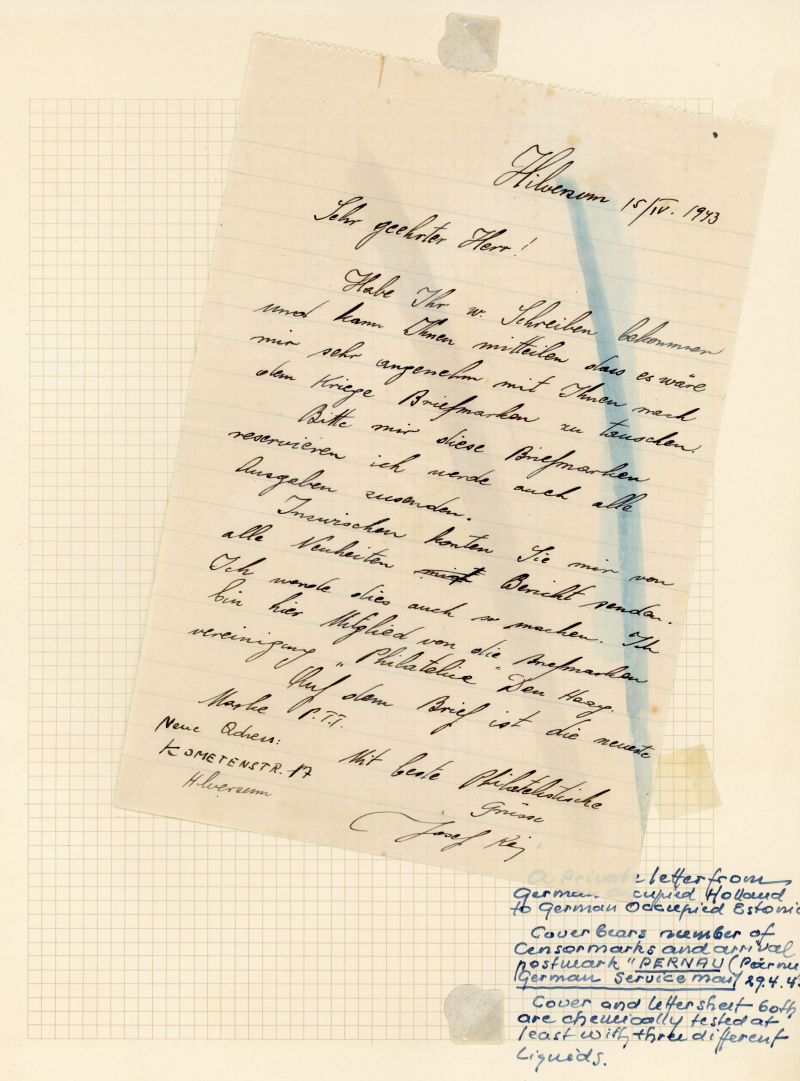 Hilversum 15/IV. 1943
Sehr geehrter Herr!
Habe Ihr w. Schreiben bekommen
und kann Ihnen mitteilen dass es wäre
mir sehr angenehm mit Ihnen nach
dem Kriege Briefmarken zu tauschen.
Bitte mir diese Briefmarken
reservieren ich werde auch alle
Ausgaben zusenden.
Inzwischen konten Sie mir von
alle Neuheiten Bericht senden.
Ich werde dies auch so machen. Ich
bin hier Mitglied von die "Briefmarken
vereinigung "Philatelica Den Haag.
Auf dem Brief ist die neueste
Marke P.T.T.
Neue Adress:
KOMETENSTR. 17
Hilversum
Mit beste Philatelistische
Grüsse
Josef
A Private letter from
German Occupied Holland
to German Occupied Estonia
Cover bears number of
Censormarks and arrival
postmark "PERNAU (Pärnu
German Service Mail) 29.4.43
Cover and lettersheet both
are chemically tested at
least with three different
Liquids.